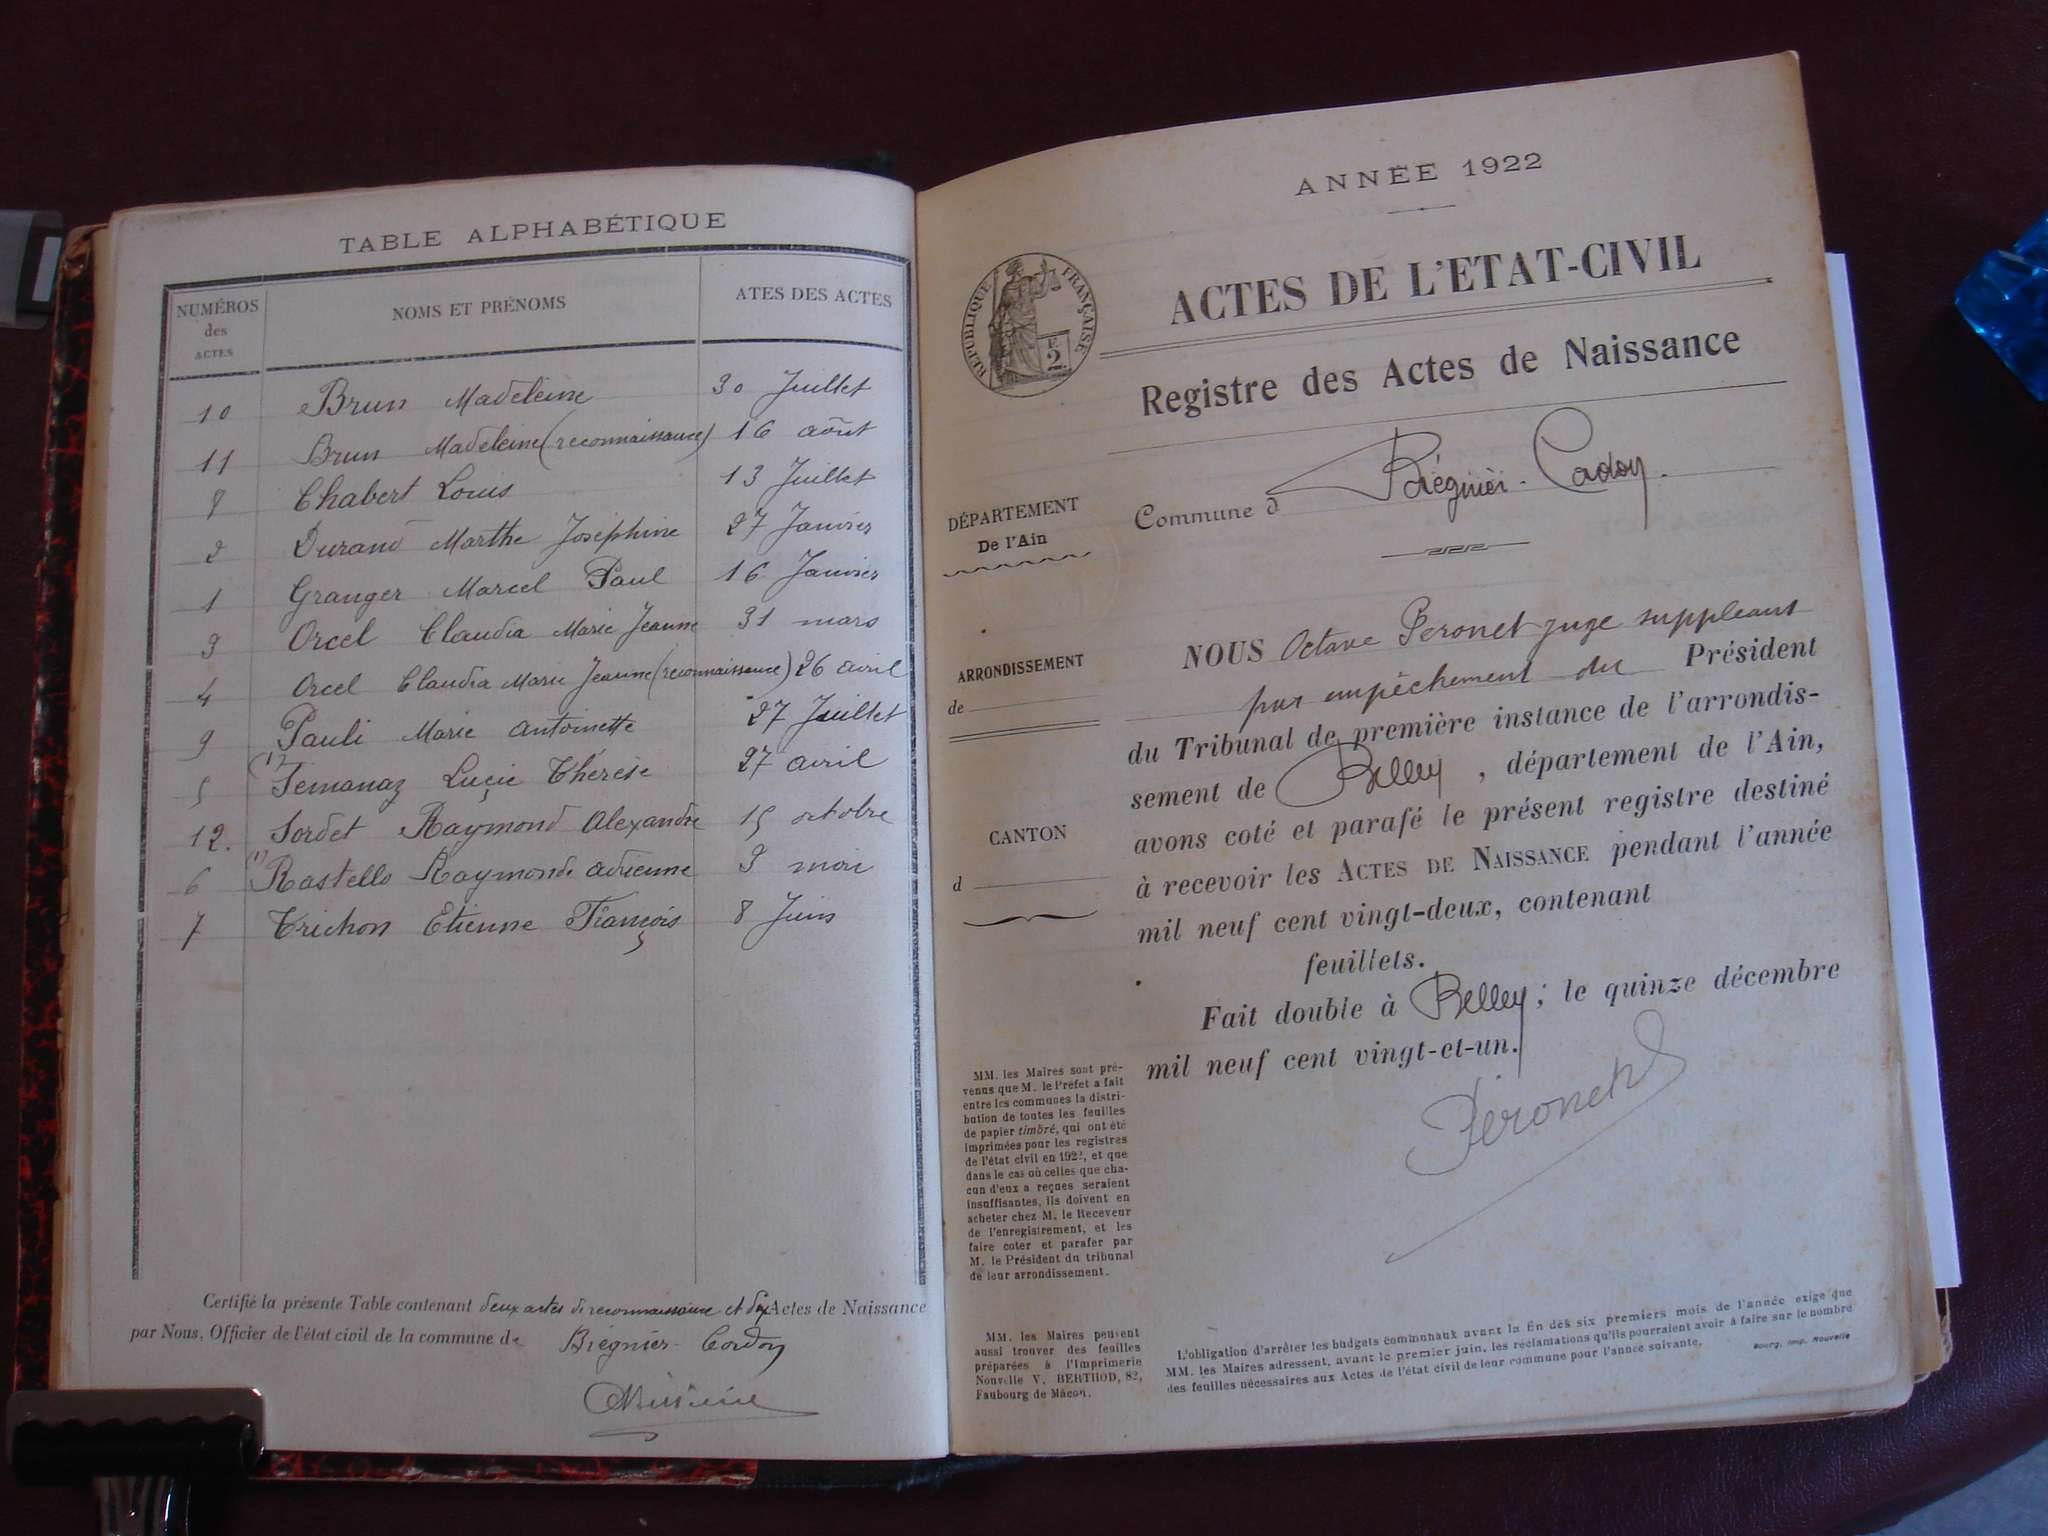 TABLE ALPHABÉTIQUE
NUMÉROS des ACTES
NOMS ET PRÉNOMS
ATES DES ACTES
10 Brun Madeleine 30 Juillet
11 Brun Madeleine (reconnaissance) 16 août
8 Chabert Louis 13 Juillet
2 Durand Marthe Joséphine 27 Janvier
1 Granger Marcel Paul 16 Janvier
3 Orcel Claudia Marie Jeanne 31 mars
4 Orcel Claudia Marie Jeanne (reconnaissance) 26 avril
9 Pauli Marie Antoinette 27 Juillet
5 (1) Temanaz Lucie Thérèse 27 avril
12. Sordet Raymond Alexandre 15 octobre
6 (1) Rastello Raymonde Adrienne 9 mai
7 Trichon Etienne François 8 Juin
Certifié la présente Table contenant deux actes de reconnaissance et dix Actes de Naissance
par Nous, Officier de l'état civil de la commune de Brégnier-Cordon
ANNÉE 1922
RÉPUBLIQUE FRANÇAISE
2
ACTES DE L'ETAT-CIVIL
Registre des Actes de Naissance
DÉPARTEMENT
De l'Ain
Commune d Brégnier-Cordon.
ARRONDISSEMENT
de
CANTON
d
NOUS Octave Peronet juge suppleant
par empêchement du Président
du Tribunal de première instance de l'arrondis-
sement de Belley, département de l'Ain,
avons coté et parafé le présent registre destiné
à recevoir les ACTES DE NAISSANCE pendant l'année
mil neuf cent vingt-deux, contenant
feuillets.
Fait double à Belley; le quinze décembre
mil neuf cent vingt-et-un.
Péronet
MM. les Maires sont pré-
venus que M. le Préfet a fait
entre les communes la distri-
bution de toutes les feuilles
de papier timbré, qui ont été
imprimées pour les registres
de l'état civil en 1922, et que
dans le cas où celles que cha-
cun d'eux a reçues seraient
insuffisantes, ils doivent en
acheter chez M. le Receveur
de l'enregistrement, et les
faire coter et parafer par
M. le Président du tribunal
de leur arrondissement.
MM. les Maires peuvent
aussi trouver des feuilles
préparées à l'Imprimerie
Nouvelle V. BERTHOD, 82,
Faubourg de Mâcon.
L'obligation d'arrêter les budgets communaux avant la fin des six premiers mois de l'année exige que
MM. les Maires adressent, avant le premier juin, les réclamations qu'ils pourraient avoir à faire sur le nombre
des feuilles nécessaires aux Actes de l'état civil de leur commune pour l'année suivante.
Bourg, Imp. Nouvelle